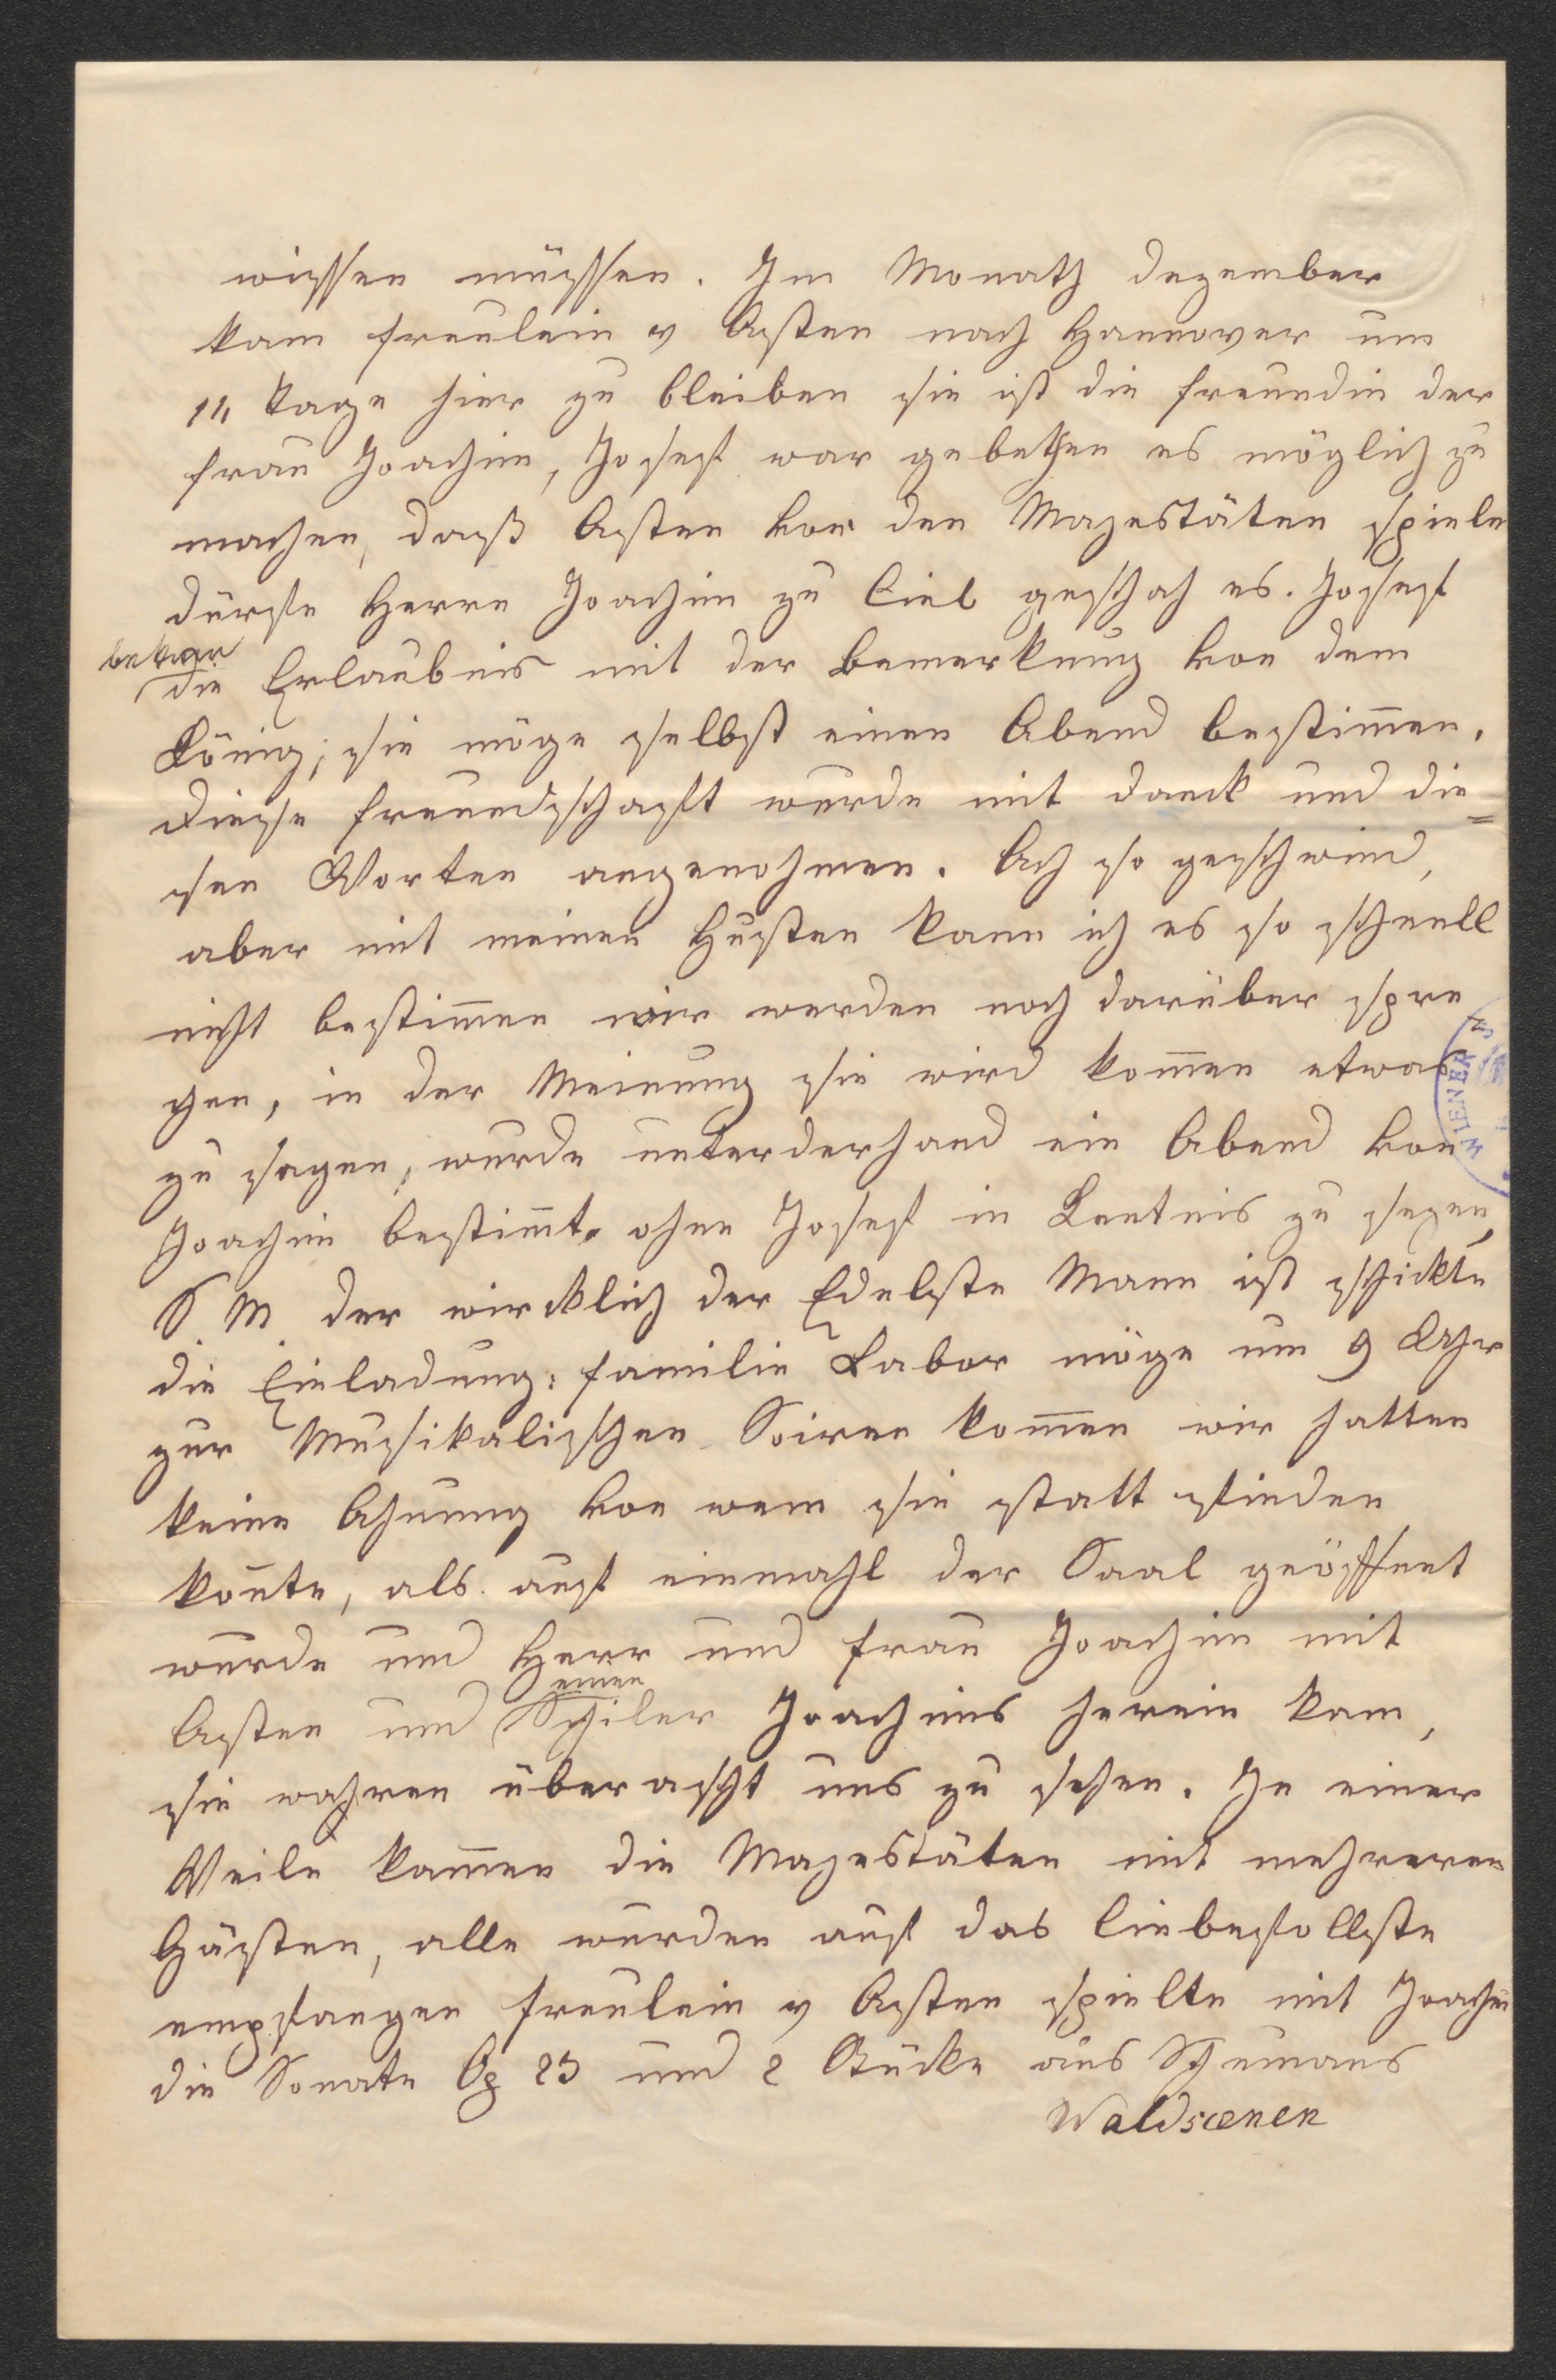 wissen müssen. Im Monath Dezember
kam Freulein v Asten nach Hannover um
14 Tage hier zu bleiben sie ist die Freundin der
Frau Joachim, Josef war gebethen es möglich zu
machen, daß Asten vor den Majestäten spielen
dürfe Herrn Joachim zu Lieb geschah es. Josef
bekam
die Erlaubnis mit der Bemerkung von dem
König, sie möge selbst einen Abend bestim̄en.
Diese Freundschaft wurde mit Danck und die=
sen Worten angenohmen. Ach so geschwind,
aber mit meinen Husten kann ich es so schnell
nicht bestim̄en wir werden noch darüber spre
chen, in der Meinung sie wird kom̄en etwas
zu sagen, wurde unterderhand ein Abend von
Joachim bestim̄t ohne Josef in Kentnis zu sezen,
S. M. der wircklich der Edelste Mann ist schickte
die Einladung: Familie Labor möge um 9 Uhr
zur Musikalischen Soiree kom̄en wir hatten
keine Ahnung von wem sie statt finden
kon̄te, als auf einmahl der Saal geöffnet
wurde und Herr und Frau Joachim mit
einen
Asten und Schiler Joachims herein kam,
sie wahren überascht uns zu sehen. In einer
Weile kam̄en die Majestäten mit mehreren
Gästen, alle wurden auf das liebefollste
empfangen Freulein v Asten spielte mit Joachim
die Sonate Op 23 und 2 Stücke aus Schumans
Waldscenen
WIENER